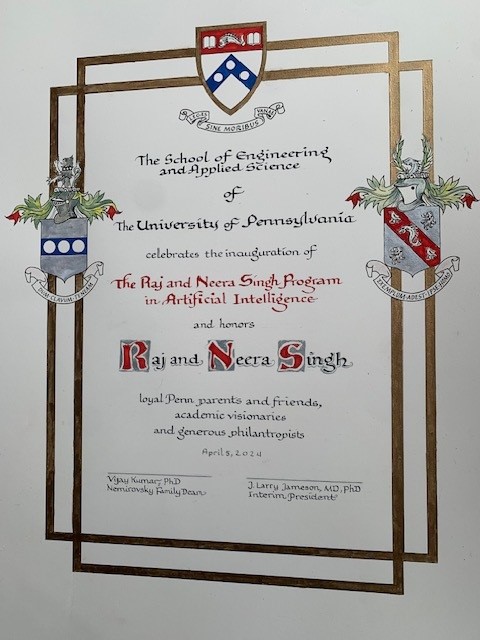 LEGES
VANAE
SINE MORIBUS
The School of Engineering
and Applied Science
of
The University of Pennsylvania
celebrates the inauguration of
The Raj and Neera Singh Program
in Artificial Intelligence
and honors
Raj and Neera Singh
loyal Penn parents and friends,
academic visionaries
and generous philantropists
April 5, 2024
DUM CLAVUM TENEAM
EXEMPLUM ADEST IPSE HOMO
Vijay Kumar, PhD
Nemirovsky Family Dean
J. Larry Jameson, MD, PhD
Interim President